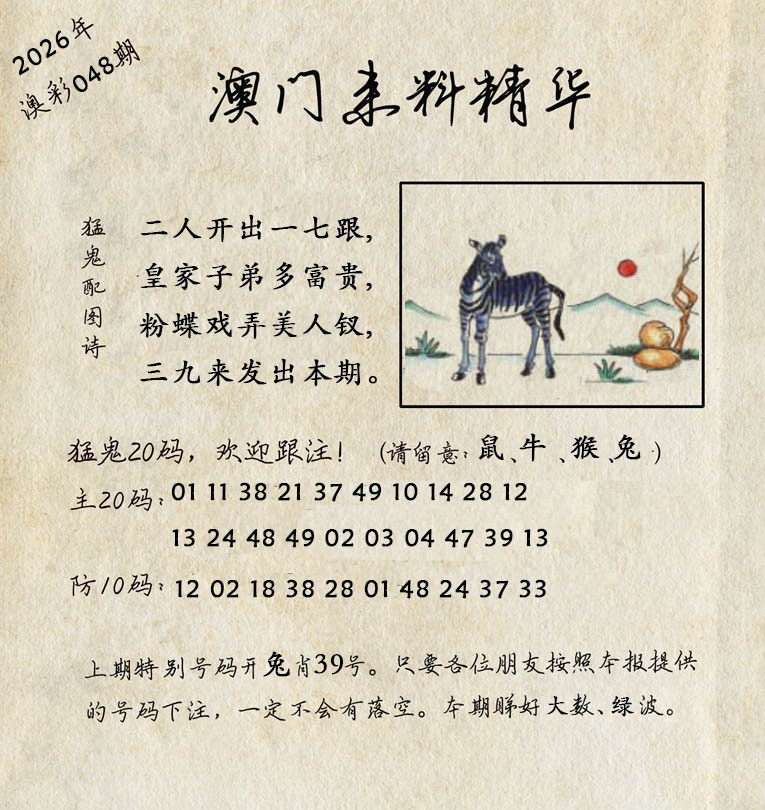 2026年
澳彩048期
澳门来料精华
猛鬼配图诗
二人开出一七跟，
皇家子弟多富贵，
粉蝶戏弄美人钗，
三九来发出本期。
猛鬼20码，欢迎跟注！（请留意：鼠、牛、猴、兔）
主20码：01 11 38 21 37 49 10 14 28 12
13 24 48 49 02 03 04 47 39 13
防10码：12 02 18 38 28 01 48 24 37 33
上期特别号码开兔肖39号。只要各位朋友按照本报提供
的号码下注，一定不会有落空。本期睇好大数、绿波。